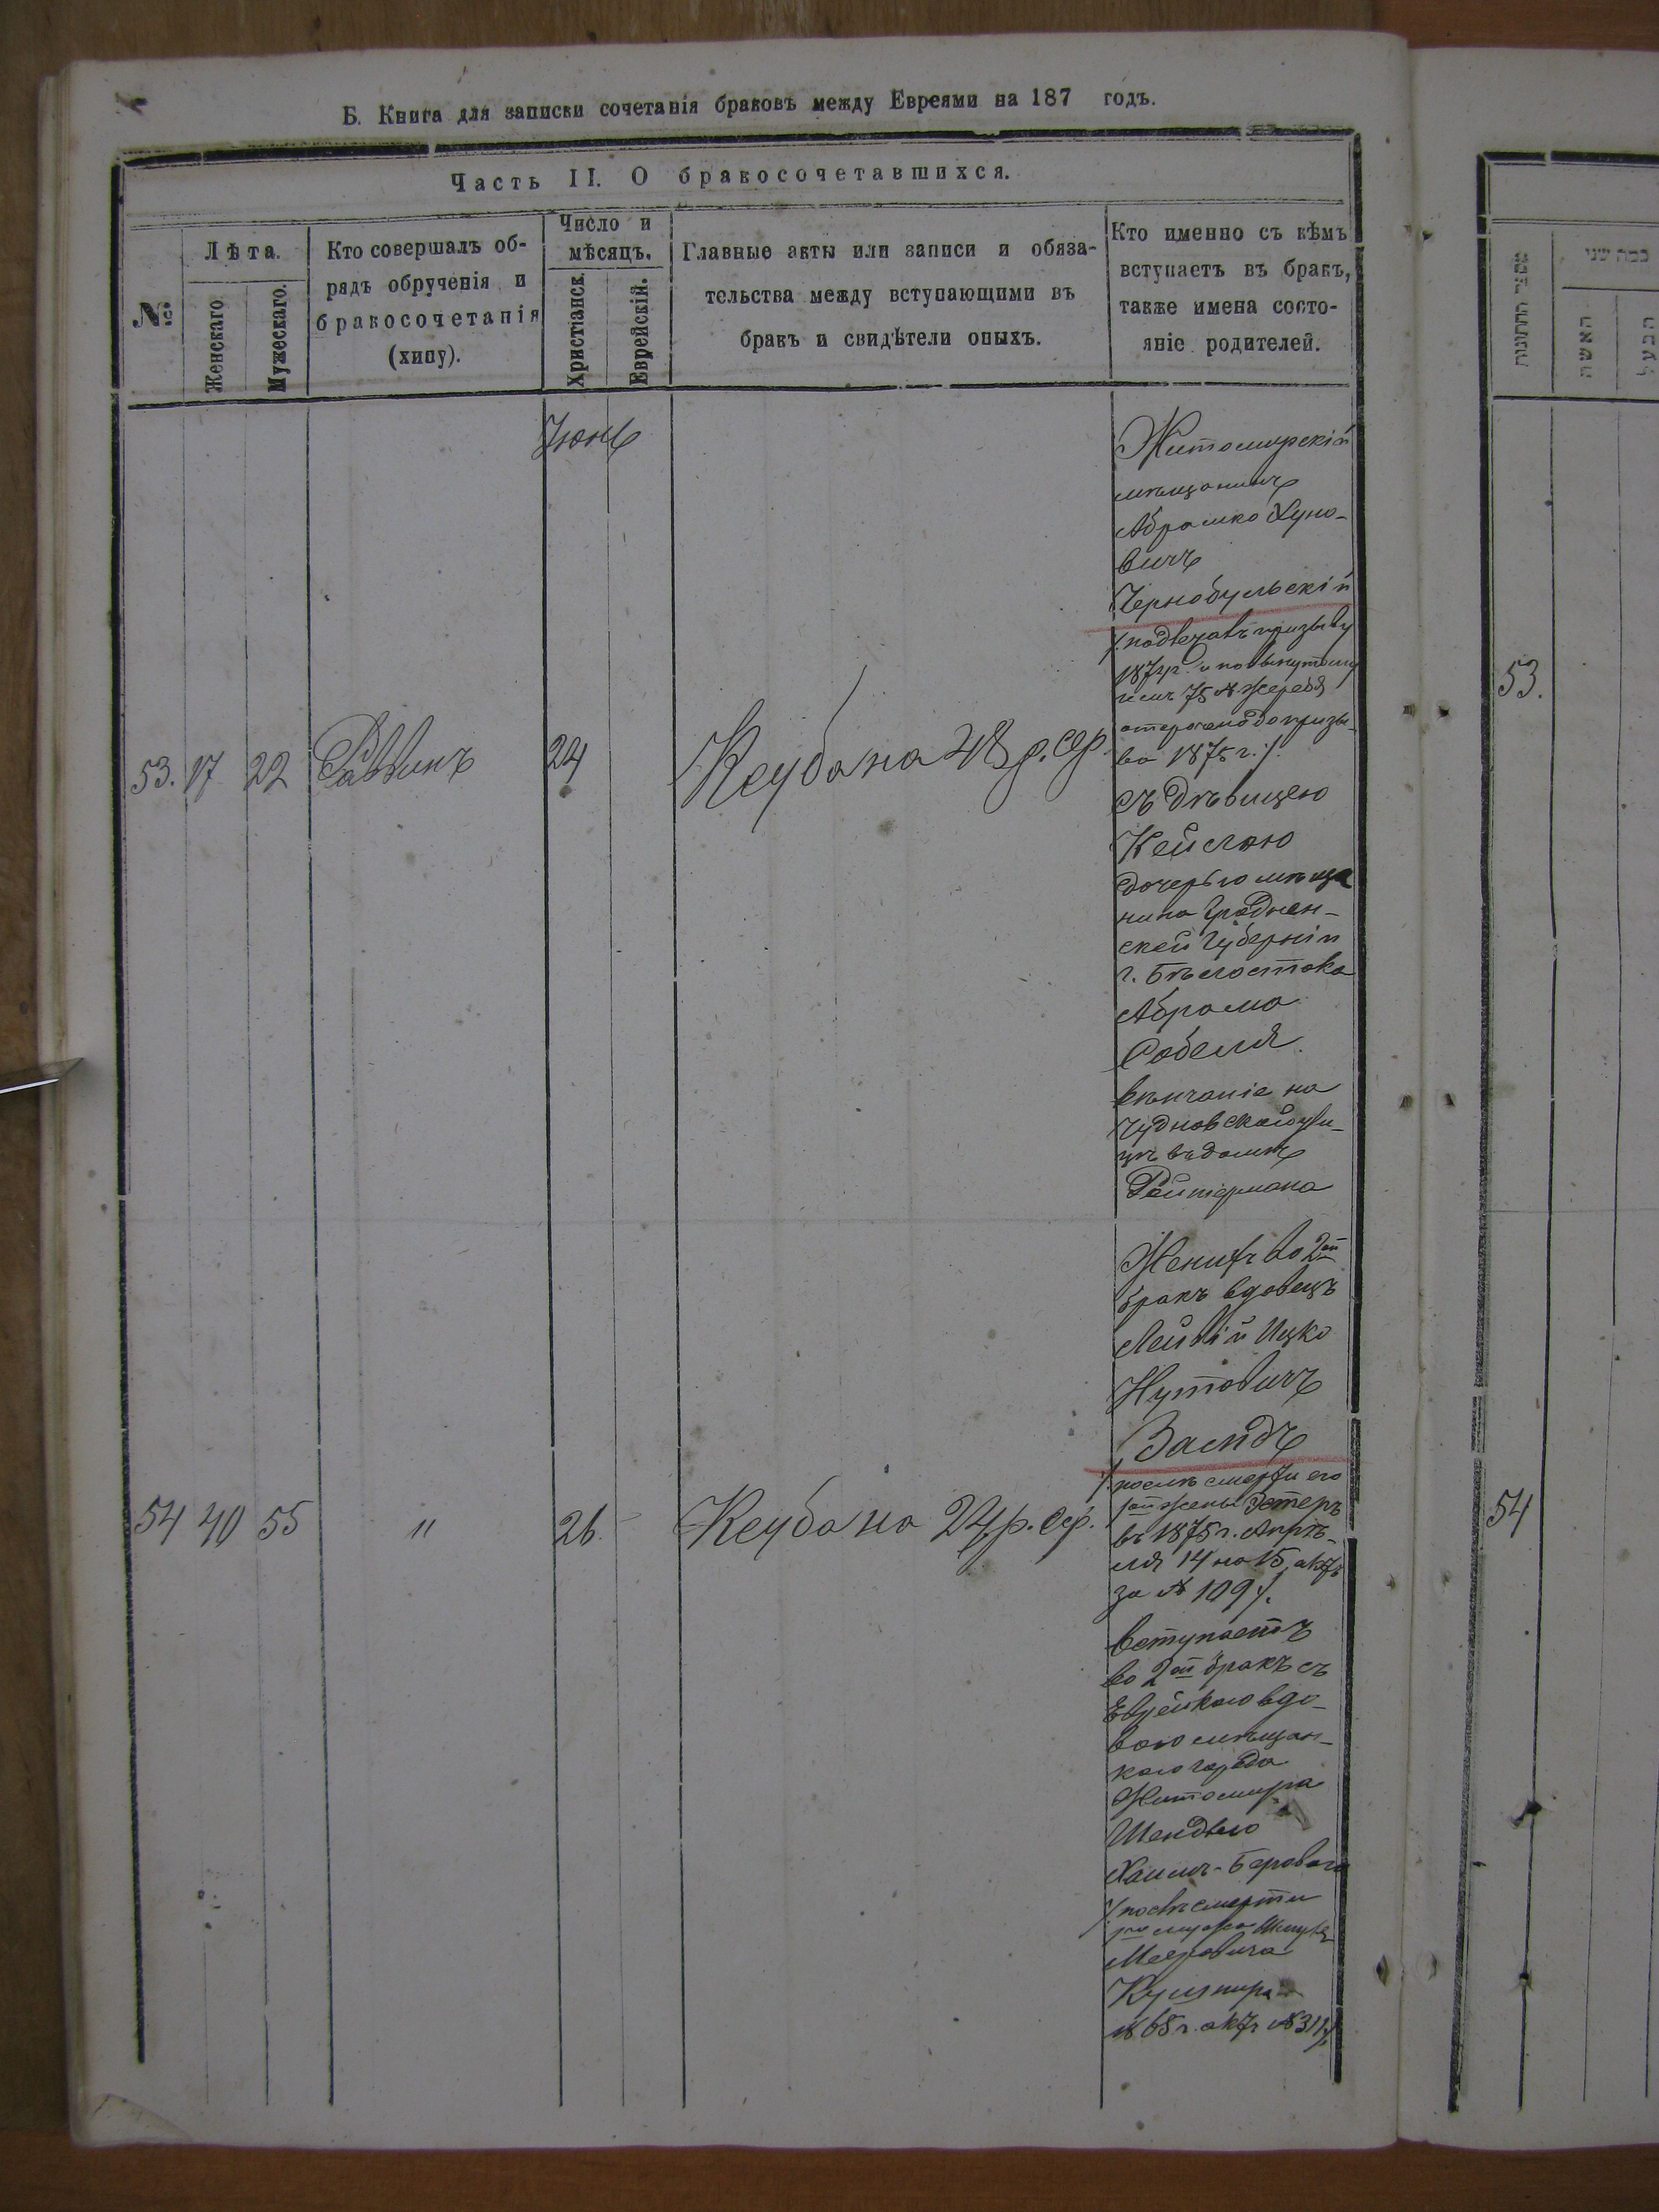 Б. Книга для записки сочетанія браковъ между Евреями на 187 годъ.
Часть II. О бракосочетавшихся.
№:
Лѣта.
Женскаго.
Мужескаго.
Кто совершалъ об-
рядъ обрученія и
бракосочетанія
(хипу).
Число и
мѣсяцъ.
Христіанск.
Еврейскій.
Главные акты или записи и обяза-
тельства между вступающими въ
бракъ и свидѣтели оныхъ.
Кто именно съ кѣмъ
вступаетъ въ бракъ,
также имена состо-
яніе родителей.
Іюнь
53. 17 22 Раввинъ 24 Ксуба на 48 р. сер.
Житомирскій
мѣщанинъ
Абрамко Хуно-
вичъ
Чернобульскій
/. подлежавъ призыву
187 и по вынутому
имъ 75 № жеребя
отсрочено до призы-
ва 1875 г. /.
съ дѣвицею
Кейлею
дочерью мѣща
нина Гроднен-
ской Губерніи
г. Бѣлостока
Абрама
Собеля.
вѣнчаніе на
Чудновской ули-
цѣ въ домѣ
Ройтермана
54 40 55 " 26 Ксуба на 24 р. сер.
Женихъ во 2ой
бракъ вдовецъ
Лейвій Ицко
Нутовичъ
Засидъ
/. послѣ смерти его
1ой жены Эстеръ
въ 1875 г. Апрѣ-
ля 14 на 15, актъ
за № 109 /.
вступаетъ
во 2ой бракъ съ
Еврейкою вдо-
вою мѣщан-
кою города
Житомира
Шендлею
Хаимъ-Беровою
/ послѣ смерти
1го мужа
Мееровича
Кушнира
1868 г. актъ № 311 /.
53.
54
מספר החתונות
כמה שני
האשה
הבעל